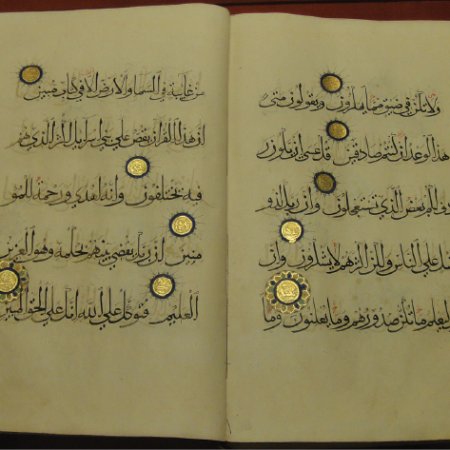 ولا تكن في ضيق مما يمكرون ويقولون متى
هذا الوعد إن كنتم صادقين قل عسى أن يكون
ردف لكم بعض الذي تستعجلون وإن ربك لذو
فضل على الناس ولكن أكثرهم لا يشكرون وإن
ليعلم ما تكن صدورهم وما يعلنون وما
من غائبة في السماء والأرض إلا في كتاب مبين
إن هذا القرآن يقص على بني إسرائيل أكثر الذي هم
فيه يختلفون وإنه لهدى ورحمة للمؤ
منين إن ربك يقضي بينهم بحكمه وهو العزيز
العليم فتوكل على الله إنك على الحق المبين